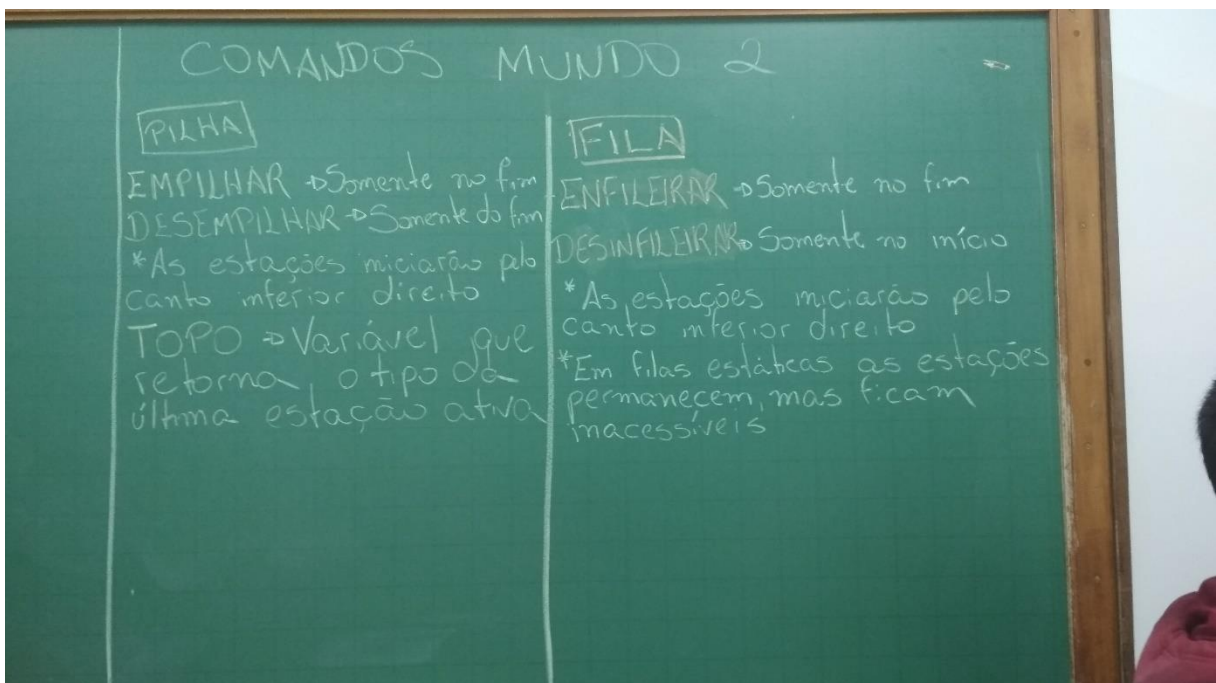 COMANDOS MUNDO 2
PILHA
EMPILHAR → Somente no fim
DESEMPILHAR → Somente do fim
*As estações iniciarão pelo
canto inferior direito
TOPO → Variável que
retorna o tipo da
última estação ativa
FILA
ENFILEIRAR → Somente no fim
DESINFILEIRAR → Somente no início
*As estações iniciarão pelo
canto inferior direito
*Em filas estáticas as estações
permanecem, mas ficam
inacessíveis